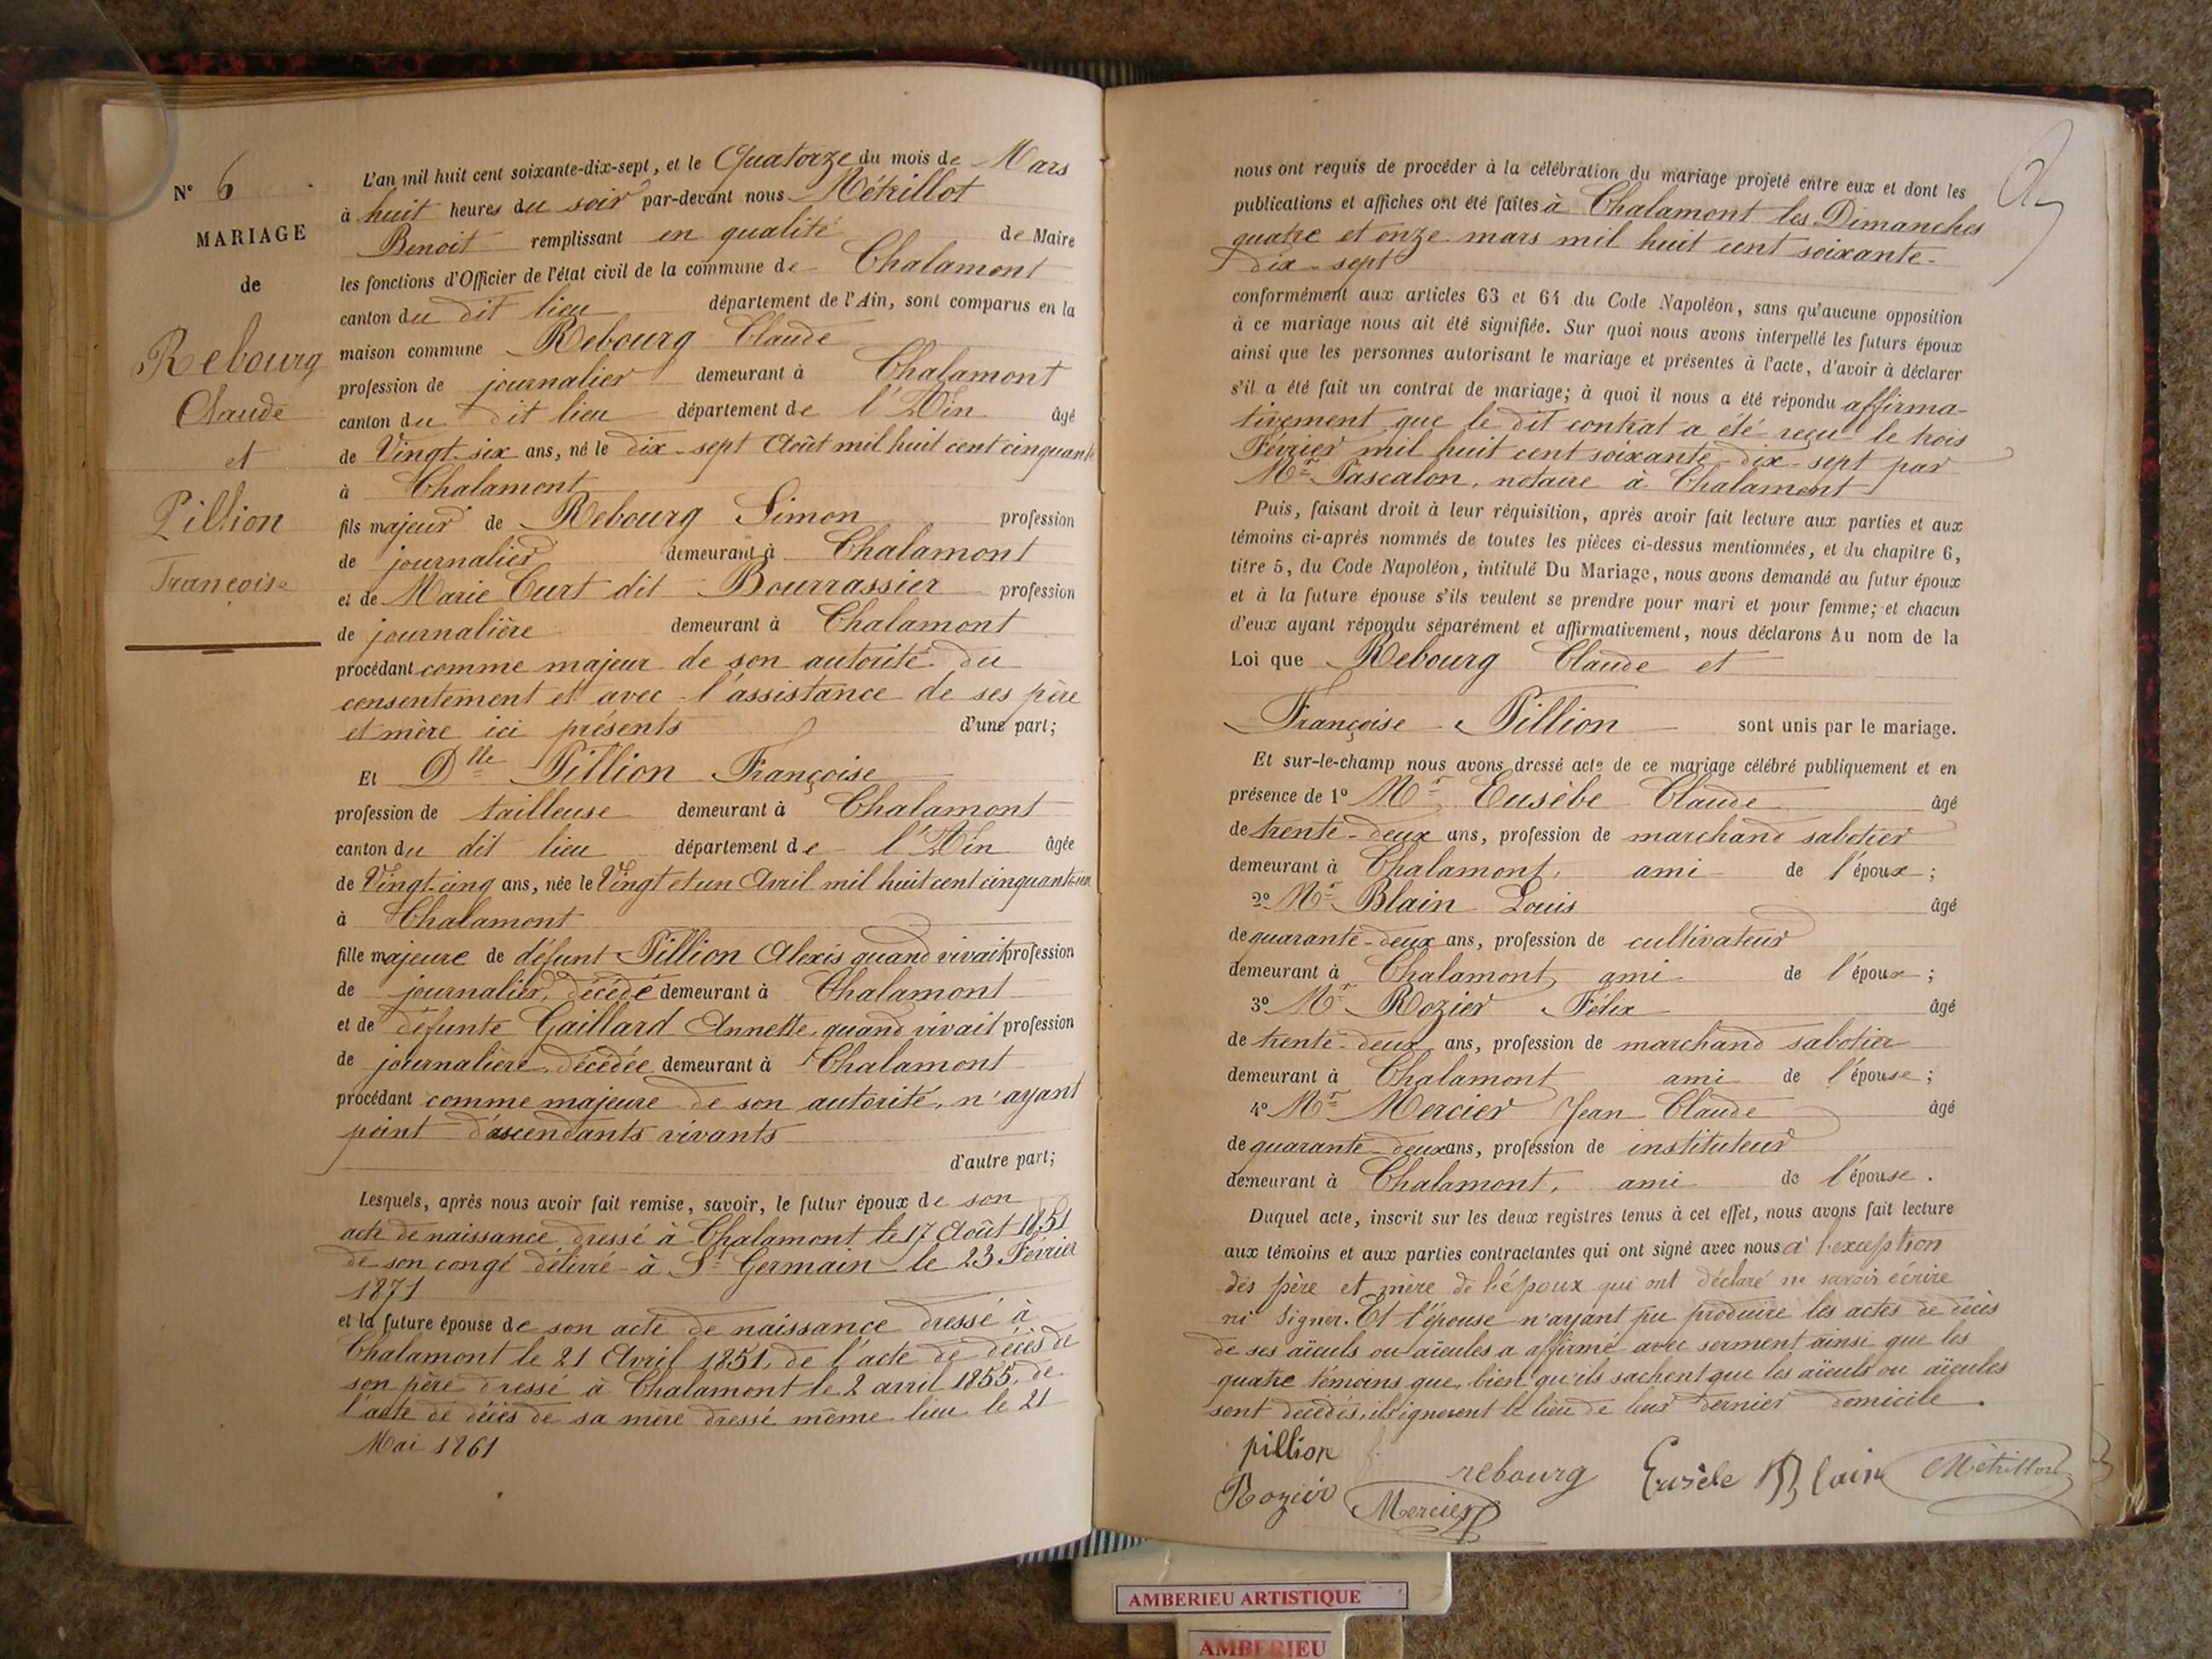 N° 6
MARIAGE
de
Rebourg
Claude
et
Pillion
Françoise
L'an mil huit cent soixante-dix-sept, et le Quatorze du mois de Mars
à huit heures du soir par-devant nous Métrillot
Benoit remplissant en qualité de Maire
les fonctions d'Officier de l'état civil de la commune de Chalamont
canton du dit lieu département de l'Ain, sont comparus en la
maison commune Rebourg Claude
profession de journalier demeurant à Chalamont
canton du dit lieu département de l'Ain âgé
de Vingt-six ans, né le dix-sept Août mil huit cent cinquante
à Chalamont
fils majeur de Rebourg Simon profession
de journalier demeurant à Chalamont
et de Marie Curt dit Bourrassier profession
de journalière demeurant à Chalamont
procédant comme majeur de son autorité du
consentement et avec l'assistance de ses père
et mère ici présents d'une part;
Et Dlle Pillion Françoise
profession de tailleuse demeurant à Chalamont
canton du dit lieu département de l'Ain âgée
de Vingt-cinq ans, née le Vingt et un Avril mil huit cent cinquante-un
à Chalamont
fille majeure de défunt Pillion Alexis quand vivait profession
de journalier, décédé demeurant à Chalamont
et de défunte Gaillard Annette, quand vivait profession
de journalière, décédée demeurant à Chalamont
procédant comme majeure de son autorité, n'ayant
point d'ascendants vivants
d'autre part;
Lesquels, après nous avoir fait remise, savoir, le futur époux de son
acte de naissance dressé à Chalamont le 17 Août 1851
de son congé délivré à St Germain le 23 Février
1871
et la future épouse de son acte de naissance dressé à
Chalamont le 21 Avril 1851, de l'acte de décès de
son père dressé à Chalamont le 2 avril 1855, de
l'acte de décès de sa mère dressé même lieu le 21
Mai 1861
nous ont requis de procéder à la célébration du mariage projeté entre eux et dont les
publications et affiches ont été faites à Chalamont les Dimanches
quatre et onze mars mil huit cent soixante-
dix-sept
conformément aux articles 63 et 64 du Code Napoléon, sans qu'aucune opposition
à ce mariage nous ait été signifiée. Sur quoi nous avons interpellé les futurs époux
ainsi que les personnes autorisant le mariage et présentes à l'acte, d'avoir à déclarer
s'il a été fait un contrat de mariage; à quoi il nous a été répondu affirma-
tivement que le dit contrat a été reçu le trois
Février mil huit cent soixante-dix-sept par
Mr Pascalon, notaire à Chalamont
Puis, faisant droit à leur réquisition, après avoir fait lecture aux parties et aux
témoins ci-après nommés de toutes les pièces ci-dessus mentionnées, et du chapitre 6,
titre 5, du Code Napoléon, intitulé Du Mariage, nous avons demandé au futur époux
et à la future épouse s'ils veulent se prendre pour mari et pour femme; et chacun
d'eux ayant répondu séparément et affirmativement, nous déclarons Au nom de la
Loi que Rebourg Claude et
Françoise Pillion sont unis par le mariage.
Et sur-le-champ nous avons dressé acte de ce mariage célébré publiquement et en
présence de 1° Mr Eusèbe Claude âgé
de trente-deux ans, profession de marchand sabotier
demeurant à Chalamont, ami de l'époux;
2° Mr Blain Louis âgé
de quarante-deux ans, profession de cultivateur
demeurant à Chalamont, ami de l'époux;
3° Mr Rozier Félix âgé
de trente-deux ans, profession de marchand sabotier
demeurant à Chalamont ami de l'épouse;
4° Mr Mercier Jean Claude âgé
de quarante-deux ans, profession de instituteur
demeurant à Chalamont, ami de l'épouse.
Duquel acte, inscrit sur les deux registres tenus à cet effet, nous avons fait lecture
aux témoins et aux parties contractantes qui ont signé avec nous à l'exception
des père et mère de l'époux qui ont déclaré ne savoir écrire
ni signer. Et l'épouse n'ayant pu produire les actes de décès
de ses aïeuls ou aïeules a affirmé avec serment ainsi que les
quatre témoins que, bien qu'ils sachent que les aïeuls ou aïeules
sont décédés, ils ignorent le lieu de leur dernier domicile.
pillion
rebourg Eusèbe Blain Métrillot
Rozier Mercier
AMBERIEU ARTISTIQUE
AMBERIEU